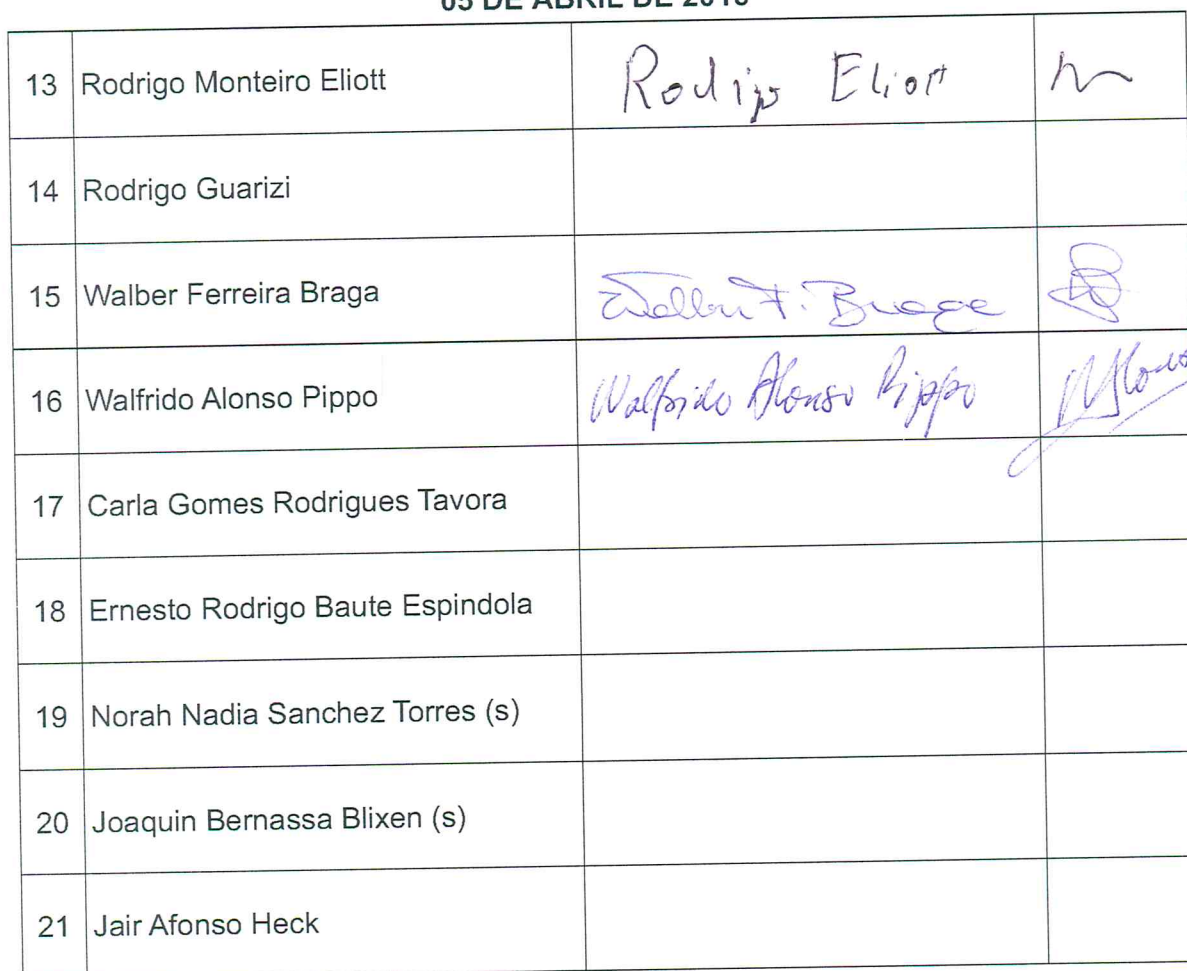 05 DE ABRIL DE 2016
13 Rodrigo Monteiro Eliott Rodrigo Eliott
14 Rodrigo Guarizi
15 Walber Ferreira Braga Walber F. Braga
16 Walfrido Alonso Pippo Walfrido Alonso Pippo
17 Carla Gomes Rodrigues Tavora
18 Ernesto Rodrigo Baute Espindola
19 Norah Nadia Sanchez Torres (s)
20 Joaquin Bernassa Blixen (s)
21 Jair Afonso Heck